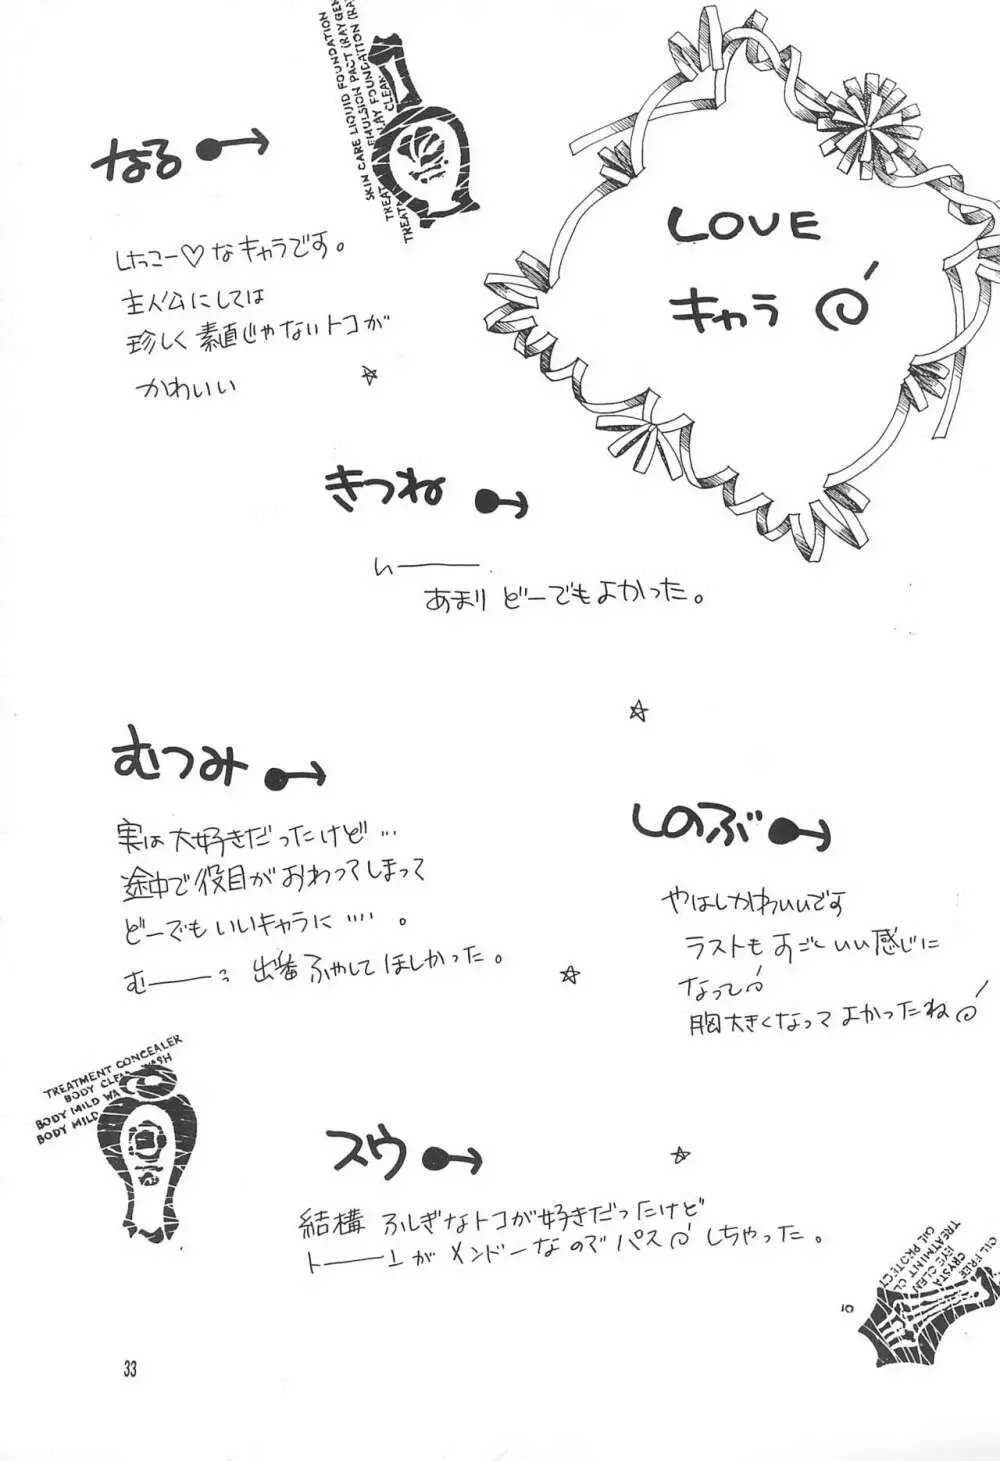 LOVE
キャラ
なる
しっこー♡なキャラです。
主人公にしては
珍しく素直じゃないトコが
かわいい
きつね
いー
あまりどーでもよかった。
むつみ
実は大好きだったけど…
途中で役目がおわってしまって
どーでもいいキャラに…。
むー 出番ふやしてほしかった。
しのぶ
やはしかわいいです
ラストもすごくいい感じに
なってし
胸大きくなってよかったね
スウ
結構ふしぎなトコが好きだったけど
トーンがメンドーなのでパスしちゃった。
SKIN CARE LIQUID FOUNDATION
EMULSION PACT (RAYGEN
FOUNDATION (RAY
CLEAR
TREAT
TREATMENT CONCEALER
BODY MILD WA
BODY MILD
OIL FREE
CRYSTA
EYE CLEN
TREATMINT CL
OIL PROTECT
10
33